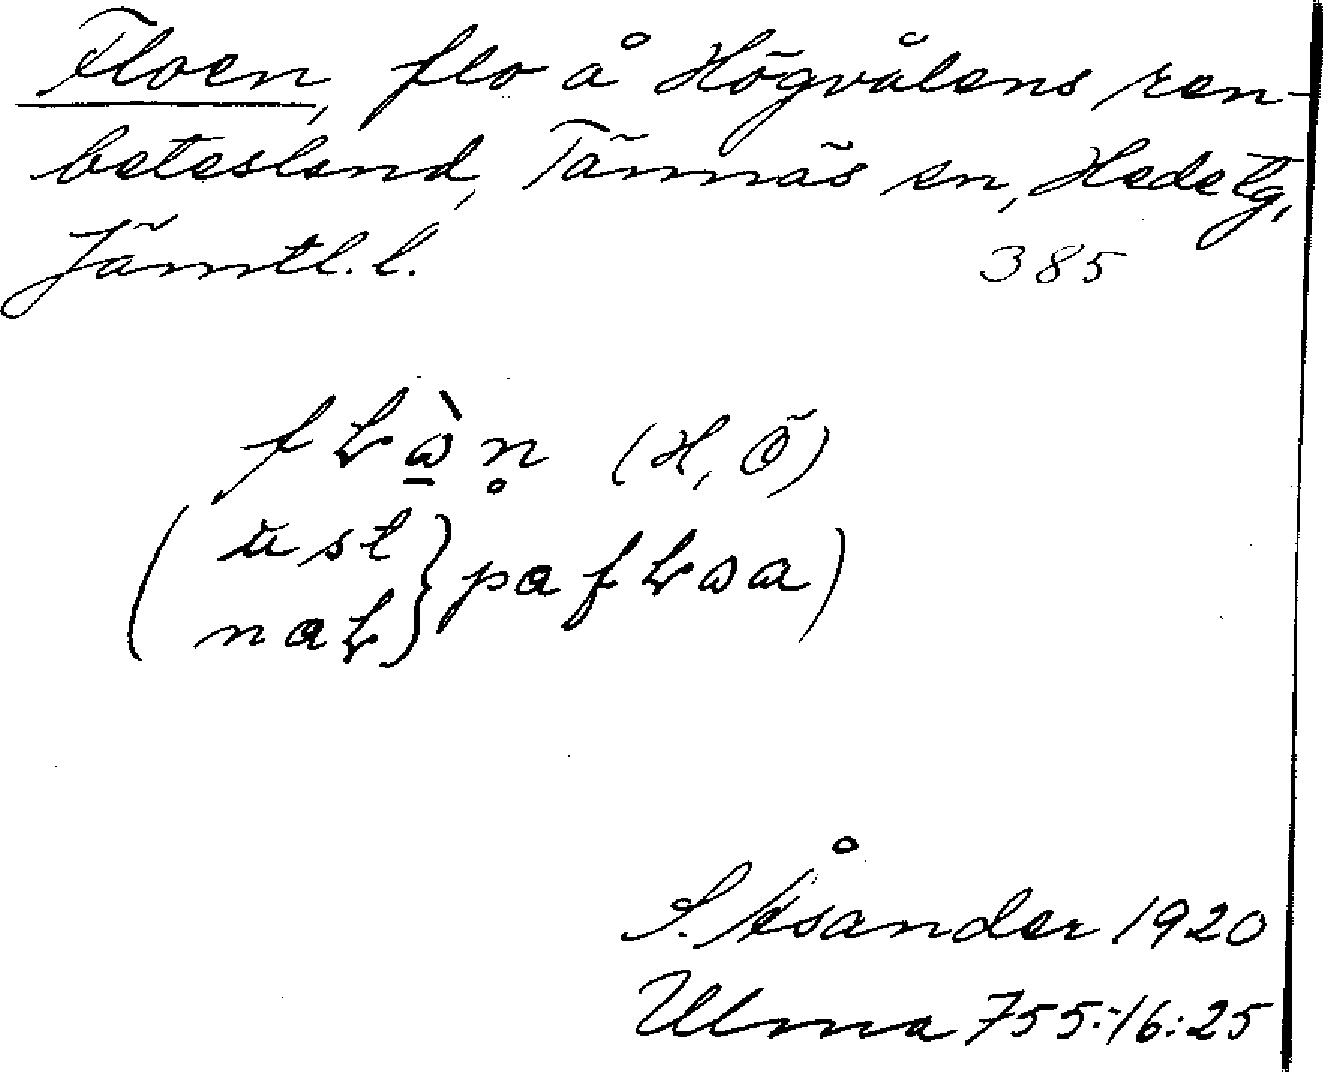 Floen, flo å Högvålens ren-
beteslend, Tännäs sn, Hede tg,
Jämtl.l.
385
fꞭὼ̱n̥ (H, Ö)
(ust
naꞭ} pafꞭωa)
S. Åsander 1920
Ulma 755:16:25